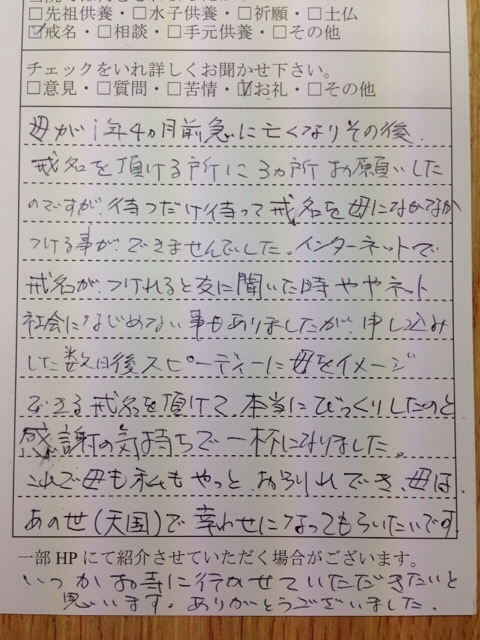 □先祖供養・□水子供養・□祈願・□土仏
☑戒名・□相談・□手元供養・□その他
チェックをいれ詳しくお聞かせ下さい。
□意見・□質問・□苦情・☑お礼・□その他
母が1年4ヵ月前急に亡くなりその後、
戒名を頂ける所に3ヵ所お願いした
のですが、待つだけ待って戒名を母になかなか
つける事ができませんでした。インターネットで
戒名が、つけれると友に聞いた時ややネット
社会になじめない事もありましたが、申し込み
した数日後スピーディーに母をイメージ
できる戒名を頂けて、本当にびっくりしたのと
感謝の気持ちで一杯になりました。
これで母も私もやっとお別れでき、母は、
あの世(天国)で幸わせになってもらいたいです。
一部HPにて紹介させていただく場合がございます。
いつかお寺に行かせていただきたいと
思います。ありがとうございました。